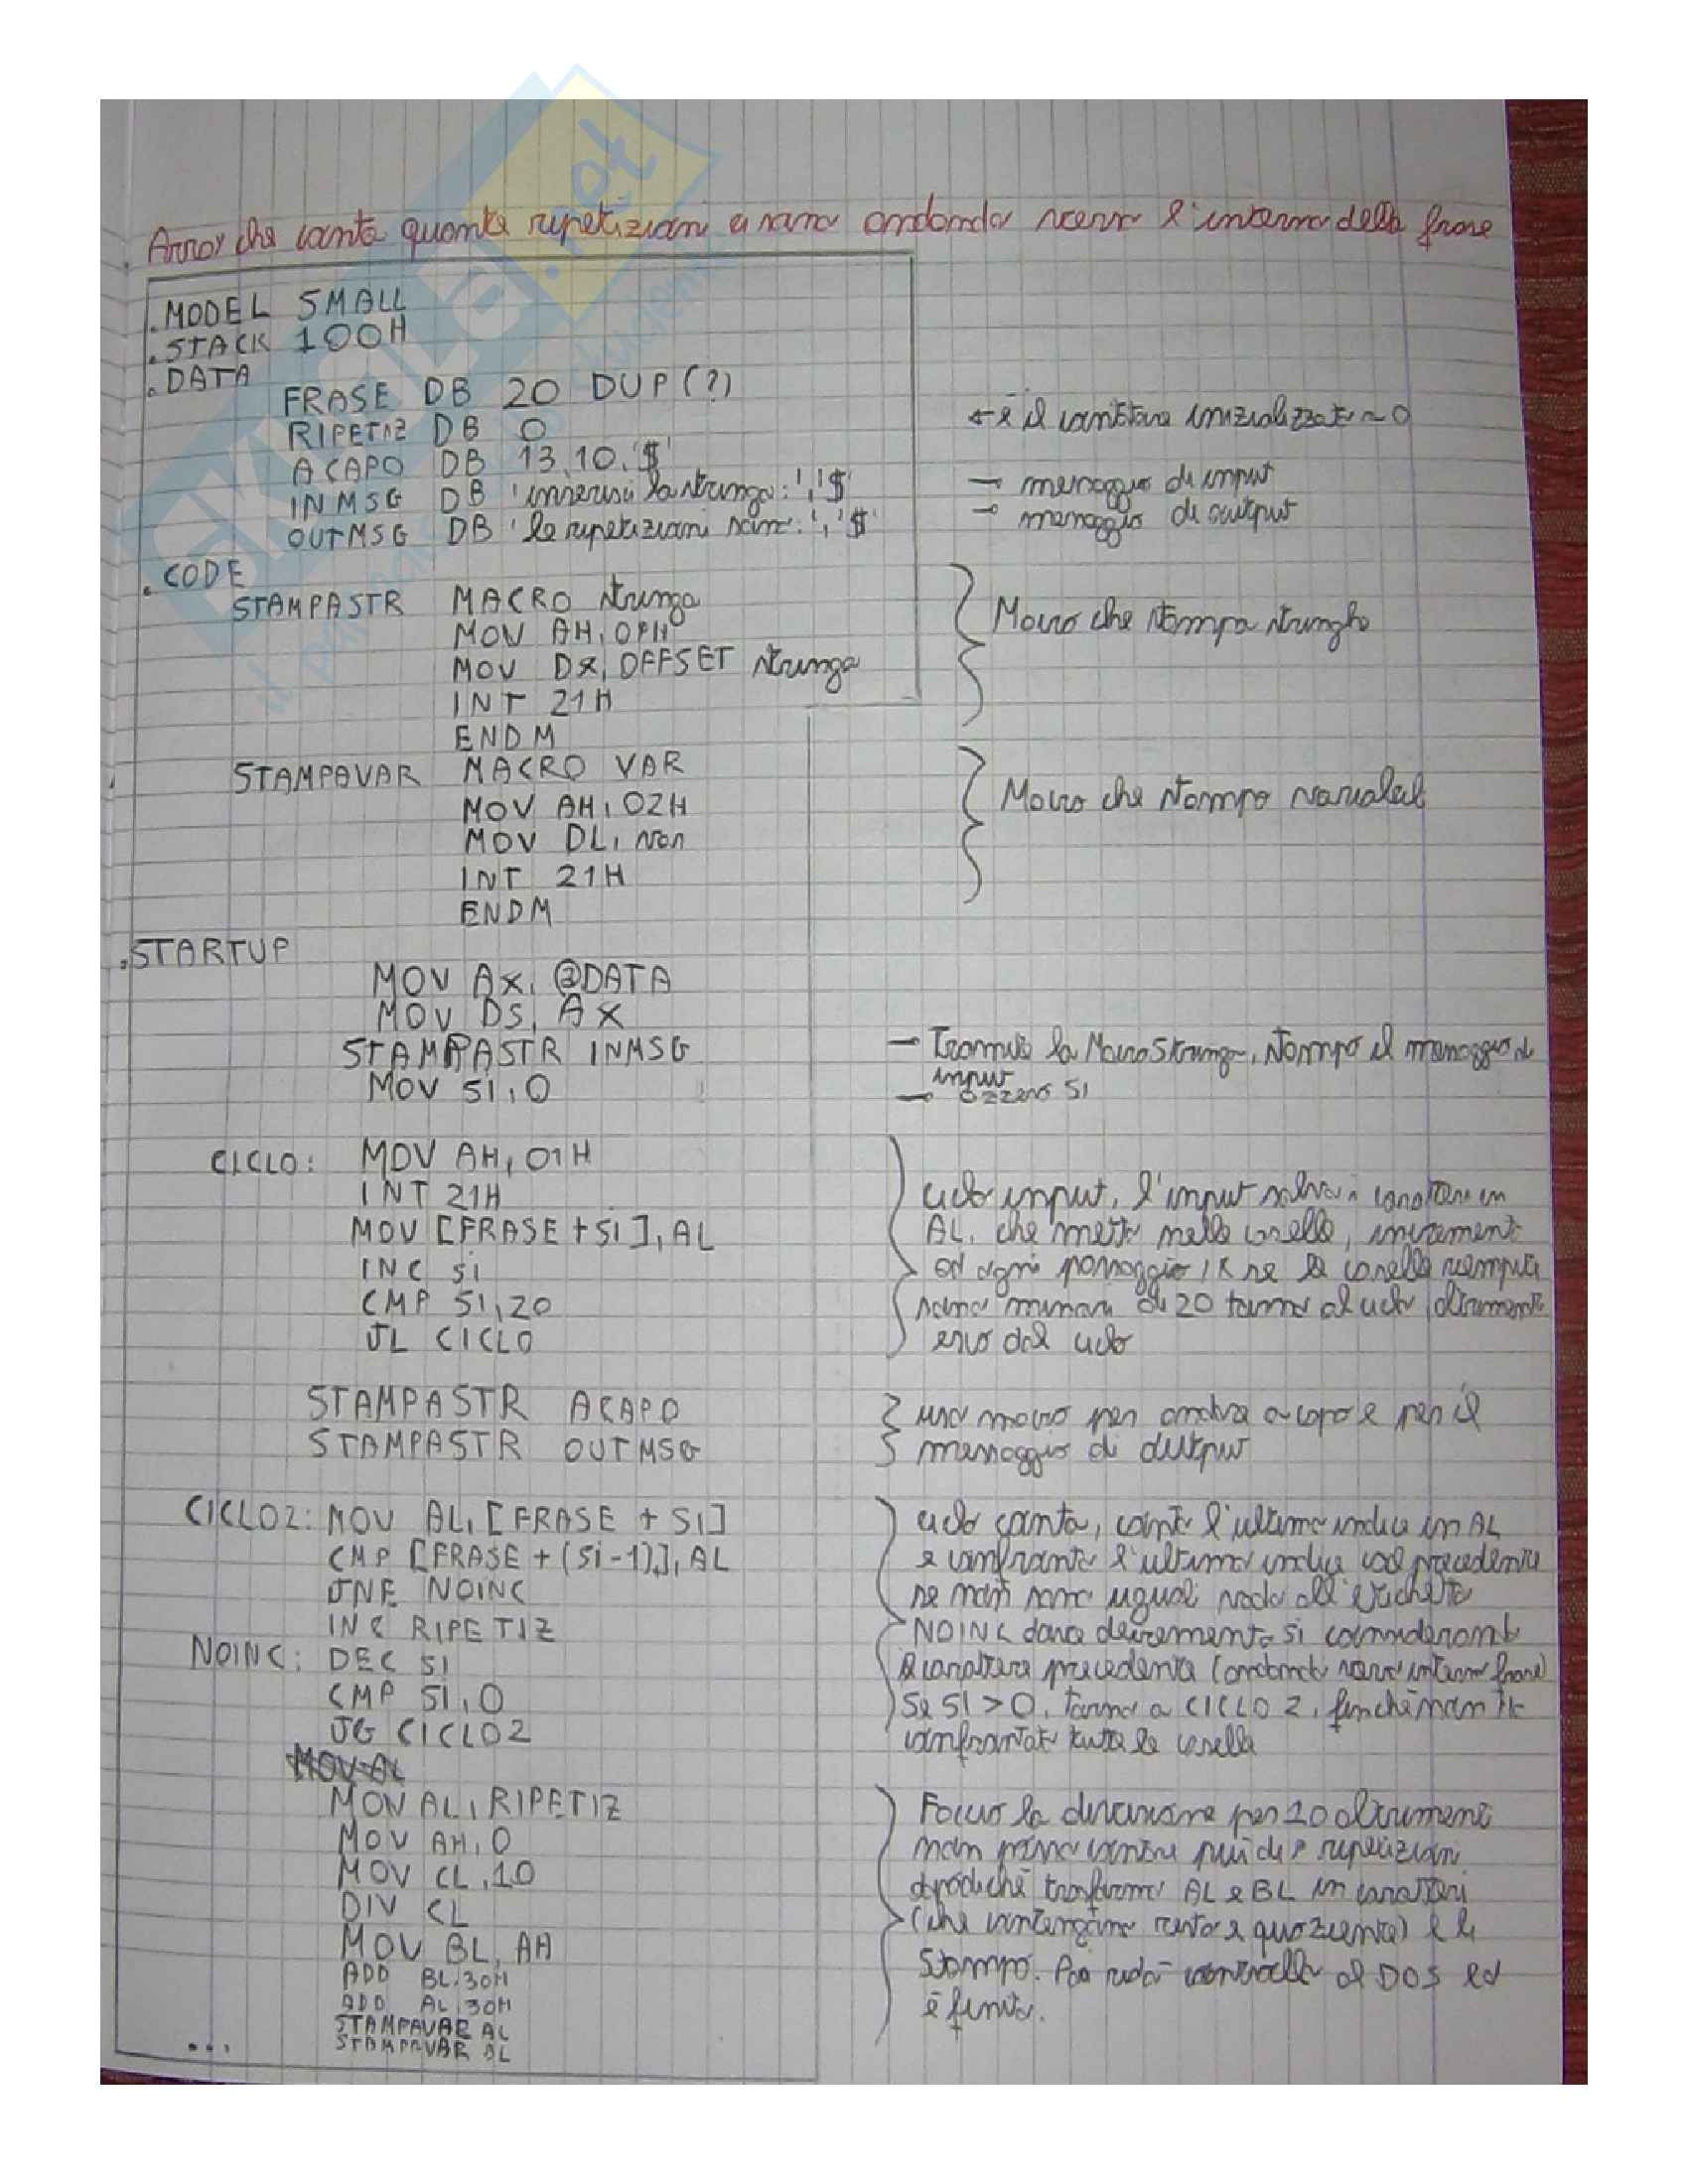 Array che conta quante ripetizioni ci sono andando verso l'interno della frase
.MODEL SMALL
.STACK 100H
.DATA
FRASE DB 20 DUP(?)
RIPETIZ DB 0 ← è il contatore inizializzato a 0
ACAPO DB 13,10,'$'
INMSG DB 'inserisci la stringa:','$' → messaggio di input
OUTMSG DB 'le ripetizioni sono:','$' → messaggio di output
.CODE
STAMPASTR MACRO stringa
MOV AH,09H
MOV DX,OFFSET stringa
INT 21H
ENDM
Macro che stampa stringhe
STAMPAVAR MACRO VAR
MOV AH,02H
MOV DL,var
INT 21H
ENDM
Macro che stampa variabili
.STARTUP
MOV AX,@DATA
MOV DS,AX
STAMPASTR INMSG → Tramite la Macro Stringa, stampo il messaggio di
input
MOV SI,0 → azzero SI
CICLO: MOV AH,01H
INT 21H
MOV [FRASE+SI],AL
INC SI
CMP SI,20
JL CICLO
ciclo input, l'input salva i caratteri in
AL, che metto nella casella, incremento
ad ogni passaggio, e se le caselle riempite
sono minori di 20 torno al ciclo, altrimenti
esco dal ciclo
STAMPASTR ACAPO
STAMPASTR OUTMSG
uso macro per andare a capo e per il
messaggio di output
CICLO2: MOV AL,[FRASE + SI]
CMP [FRASE+(SI-1)],AL
JNE NOINC
INC RIPETIZ
NOINC: DEC SI
CMP SI,0
JG CICLO2
ciclo conta, l'ultimo indice in AL
e confronto l'ultimo indice col precedente
se non sono uguali vado all'etichetta
NOINC dove decremento SI considerando
il carattere precedente (andando verso interno frase)
Se SI>0, torno a CICLO2, finché non ho
confrontato tutte le caselle
MOV AL
MOV AL,RIPETIZ
MOV AH,0
MOV CL,10
DIV CL
MOV BL,AH
ADD BL,30H
ADD AL,30H
STAMPAVAR AL
STAMPAVAR BL
...
Faccio la divisione per 10 altrimenti
non posso contare più di 9 ripetizioni
dopodiché trasformo AL e BL in caratteri
(che contengono resto e quoziente) e li
stampo. Poi ridò controllo al DOS ed
è finito.
SKUOLA.net